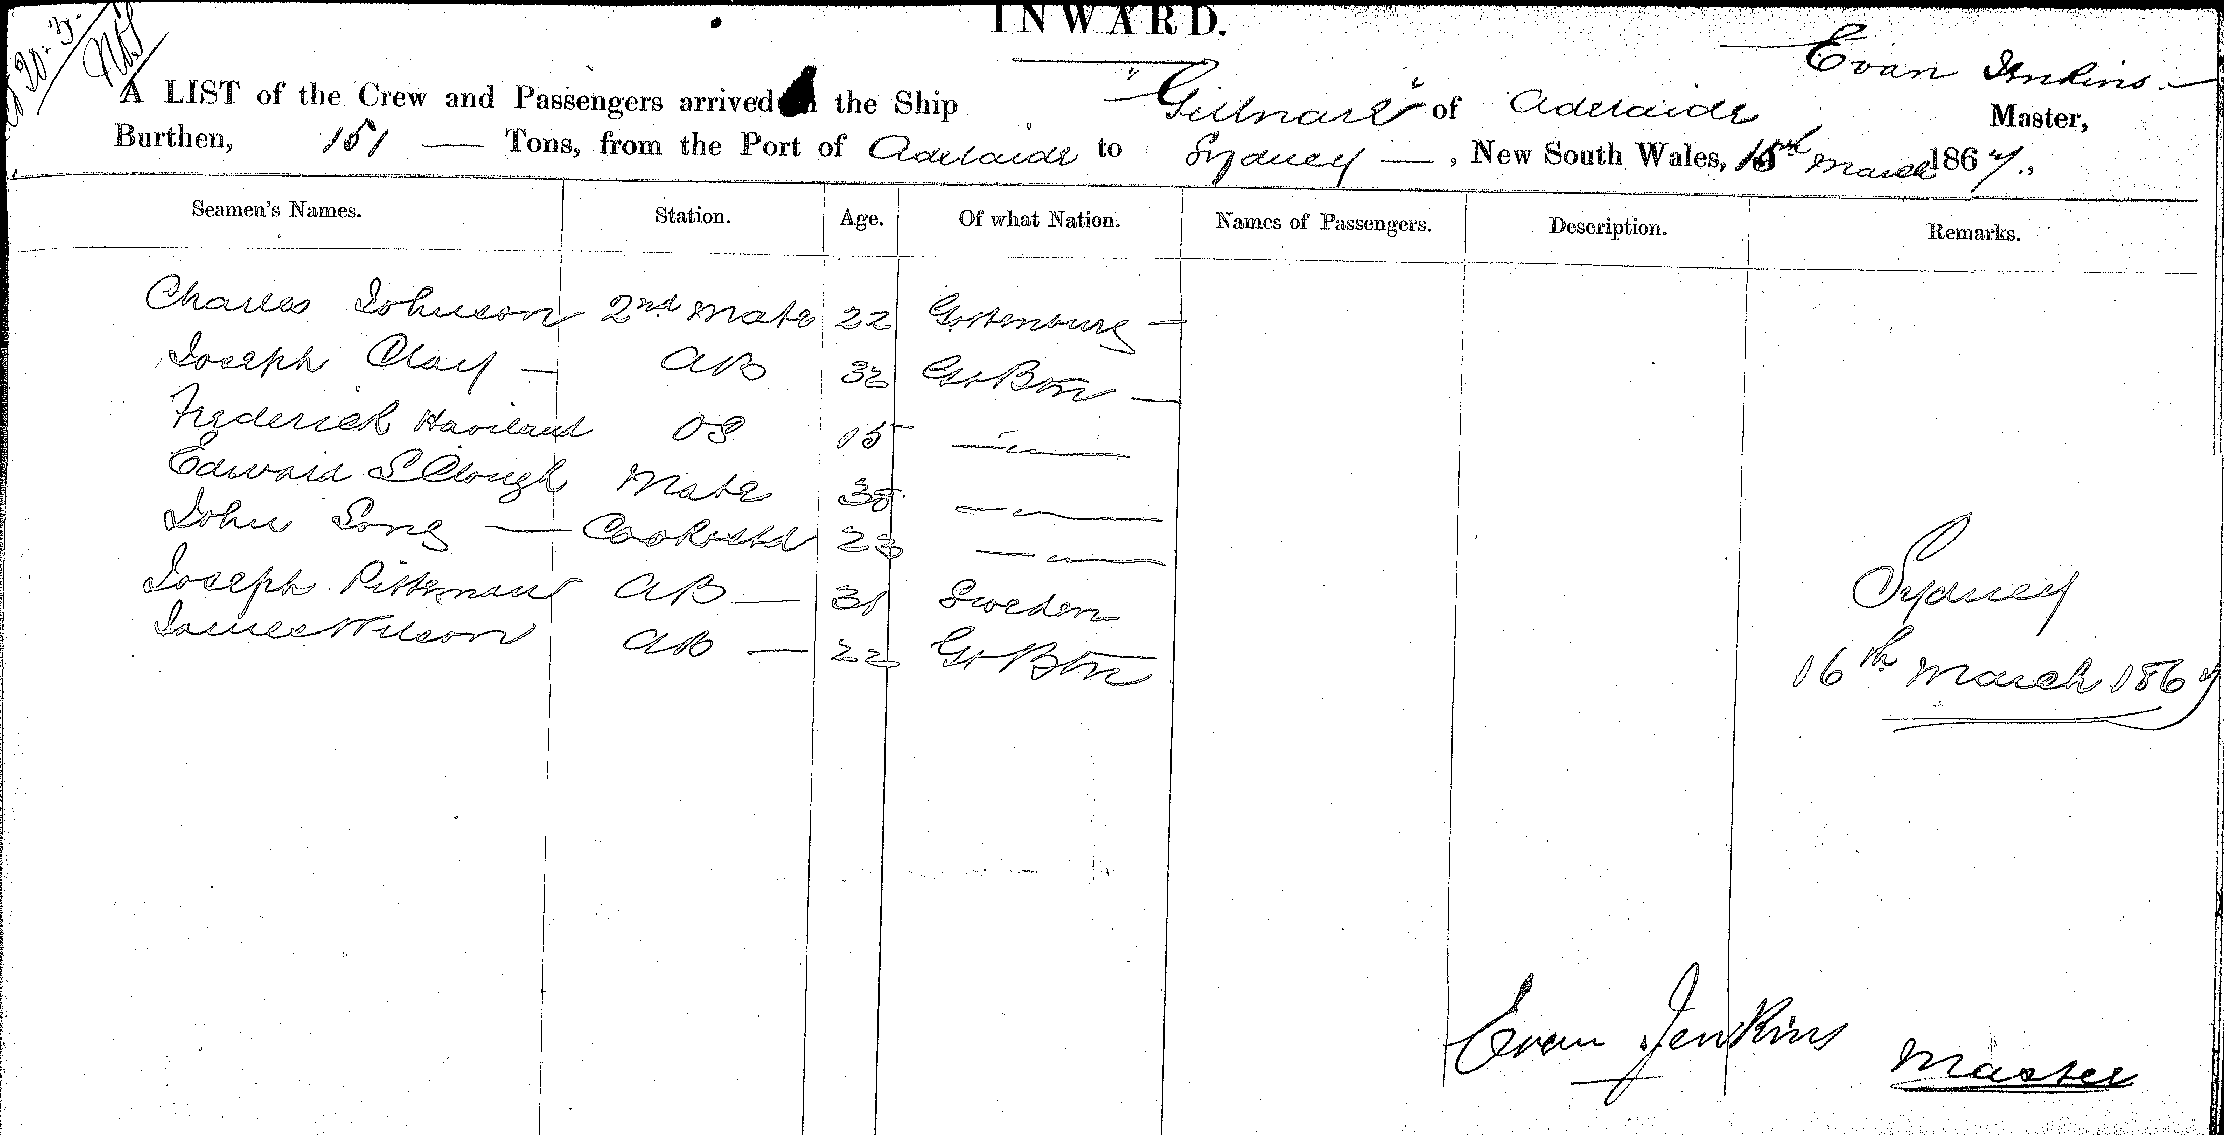 20.3.
INWARD.
A LIST of the Crew and Passengers arrived the Ship "Gilmark" of Adelaide Evan Jenkins — Master,
Burthen, 151 — Tons, from the Port of Adelaide to Sydney — , New South Wales, 15th March 1867.
Seamen's Names. Station. Age. Of what Nation. Names of Passengers. Description. Remarks.
Charles Johnson 2nd Mate 22 Gottenburg —
Joseph Clay — AB 32 Gt Btn —
Frederick Haviland OS 15 — —
Edward S Clough Mate 38 — —
John Long — Cook & Std 23 — —
Joseph Pitteman AB — 31 Sweden
James Wilson AB — 22 Gt Btn
Sydney
16th March 1867
Evan Jenkins
Master